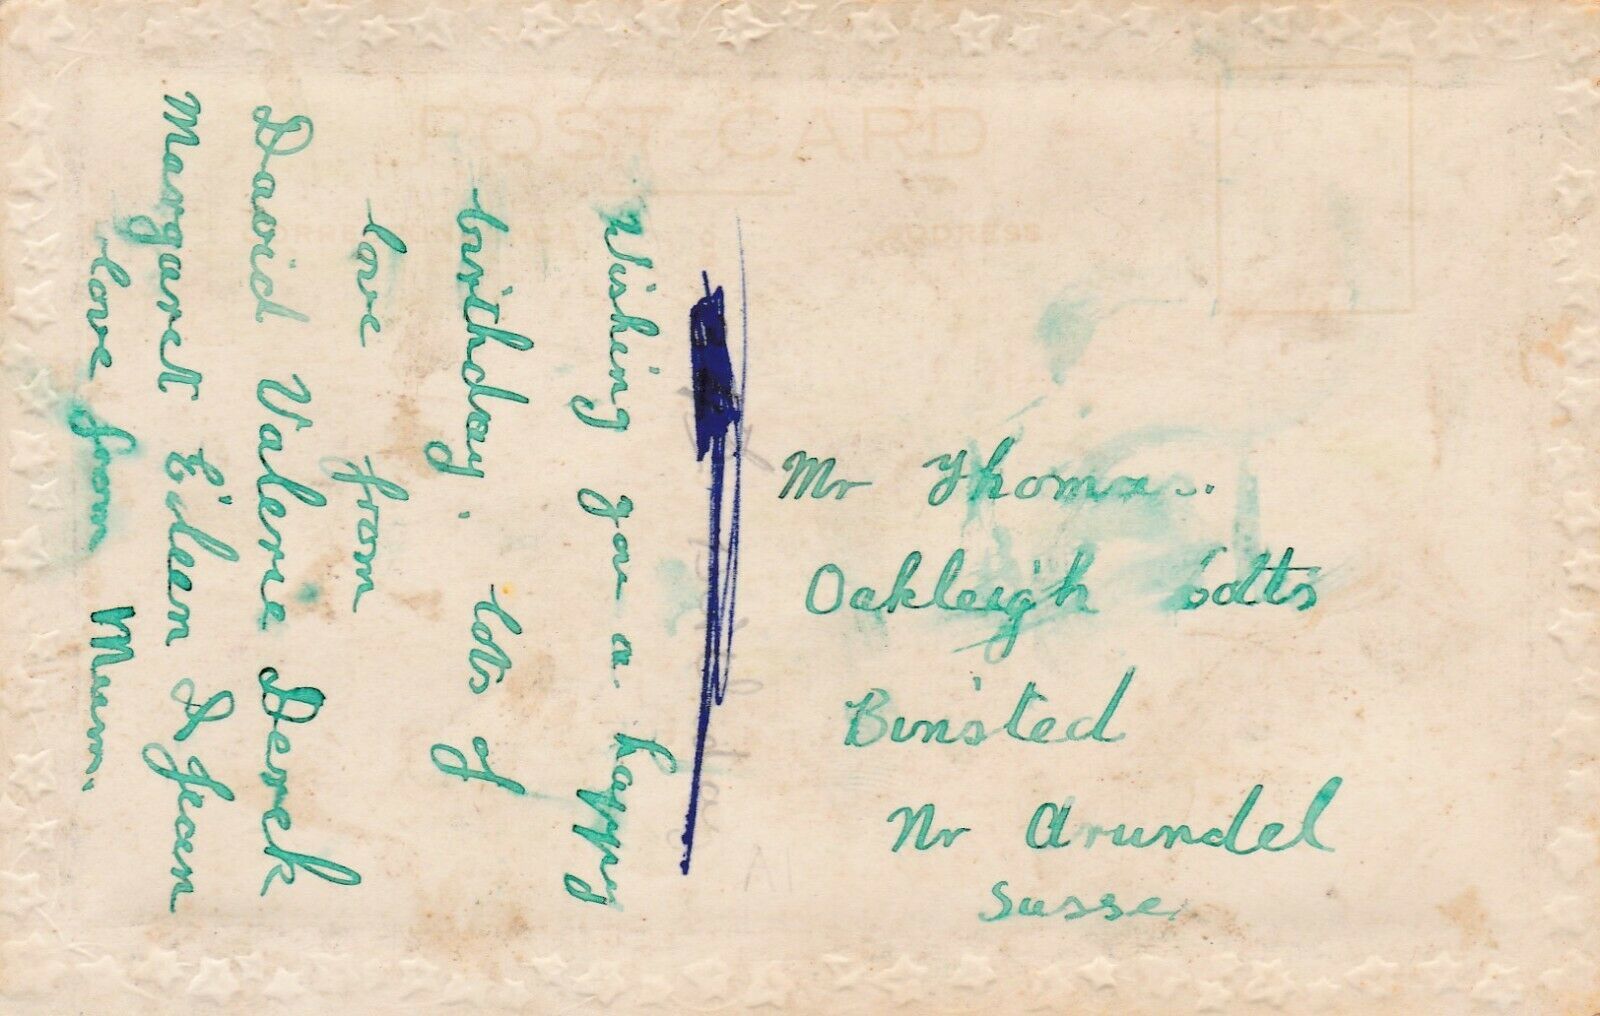 POST-CARD
Wishing you a happy
birthday. lots of
love from
David Valerie Derek
Margaret Eileen & Jean
love from Mum.
Mr Thomas.
Oakleigh Cotts
Binsted
Nr Arundel
Susse